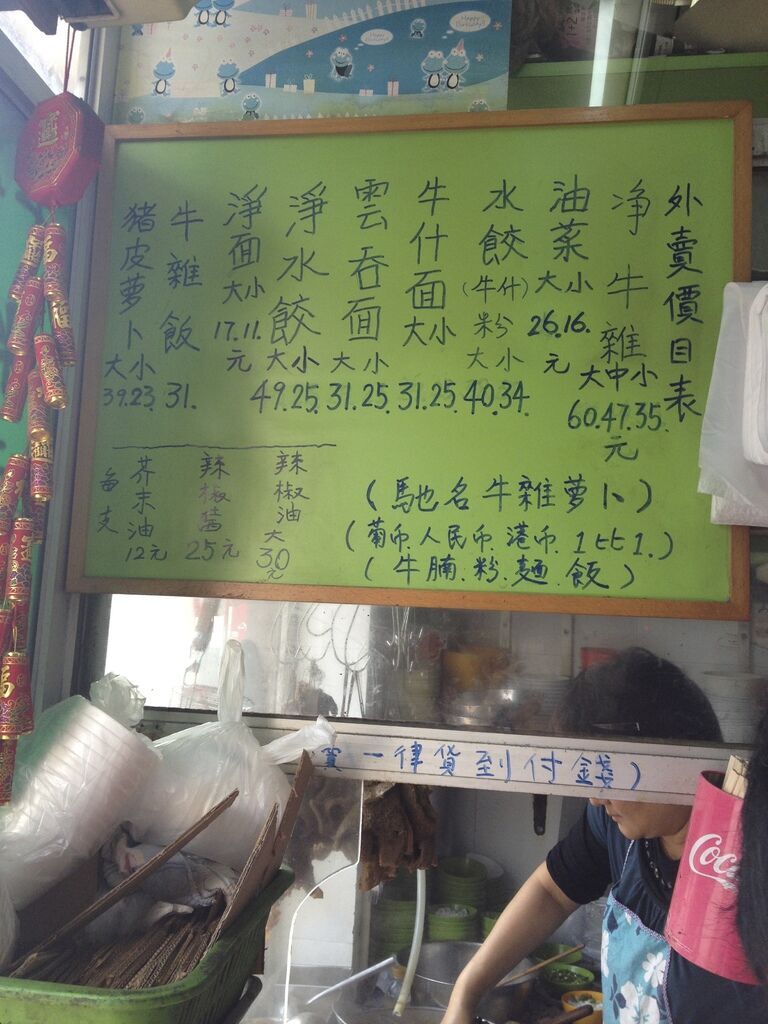 外賣價目表
净牛雜 大中小 60.47.35.元
油菜 大小 26.16.元
水餃(牛什)粉 大小 40.34.
牛什面 大小 31.25.
雲吞面 大小 31.25.
淨水餃 大小 49.25.
淨面 大小 17.11.元
牛雜飯 31.
猪皮萝卜 大小 39.23.
(馳名牛雜萝卜)
(葡币.人民币.港币.1比1.)
(牛腩.粉.麵.飯)
辣椒油 大30元
辣椒醬 25元
芥末油 12元
每支
買一律貨到付錢)
Coc
Happy
Happy
福